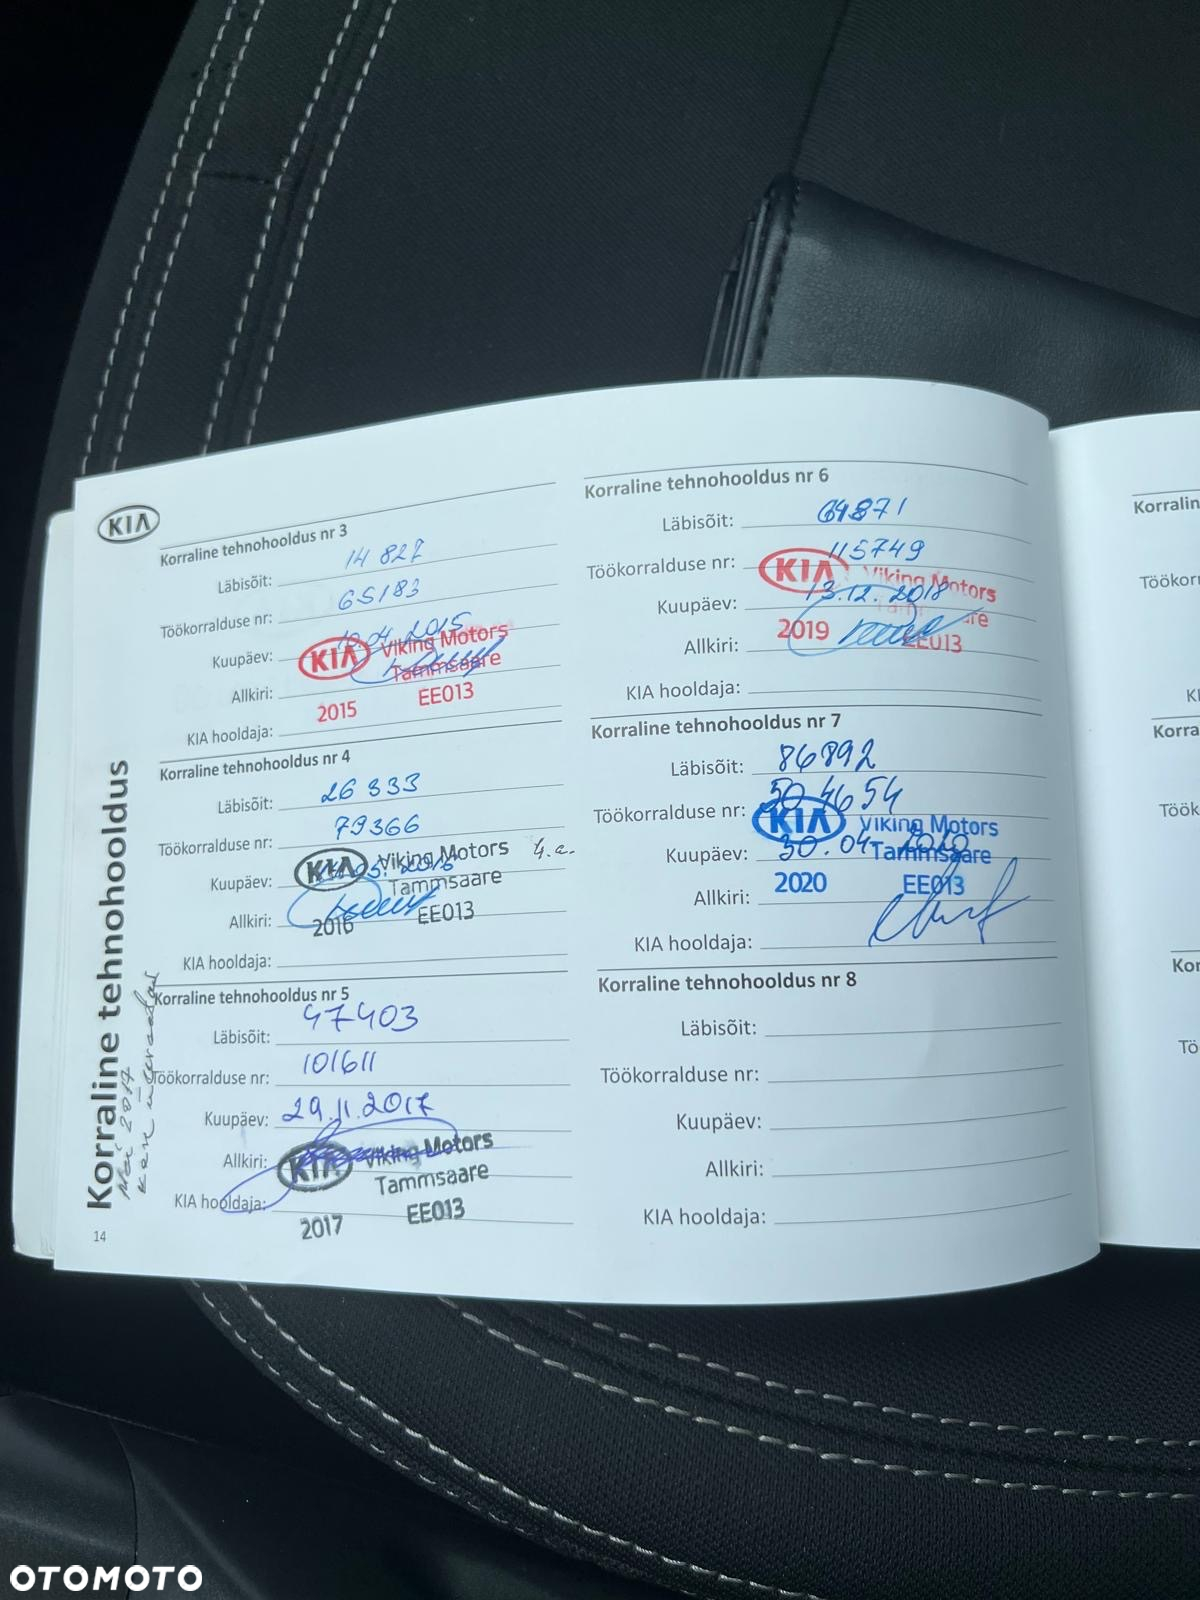 KIA
Korraline tehnohooldus
14
Korraline tehnohooldus nr 3
Läbisõit: 14 827
Töökorralduse nr: 65183
Kuupäev: 10.04.2015
KIA Viking Motors
Tammsaare
Allkiri:
2015 EE013
KIA hooldaja:
Korraline tehnohooldus nr 4
Läbisõit: 26 333
Töökorralduse nr: 79366
KIA Viking Motors 4.a.
Kuupäev:
Tammsaare
Allkiri:
2016 EE013
KIA hooldaja:
Korraline tehnohooldus nr 5
Läbisõit: 47403
Töökorralduse nr: 101611
Kuupäev: 29.11.2017
Allkiri:
KIA Viking Motors
Tammsaare
KIA hooldaja:
2017 EE013
Korraline tehnohooldus nr 6
Läbisõit: 64871
Töökorralduse nr: 115749
KIA Viking Motors
Kuupäev: 13.12.2018
Tammsaare
2019 EE013
Allkiri:
KIA hooldaja:
Korraline tehnohooldus nr 7
Läbisõit: 86892
Töökorralduse nr: 504654
KIA Viking Motors
Kuupäev: 30.04.2020
Tammsaare
2020 EE013
Allkiri:
KIA hooldaja:
Korraline tehnohooldus nr 8
Läbisõit:
Töökorralduse nr:
Kuupäev:
Allkiri:
KIA hooldaja:
OTOMOTO